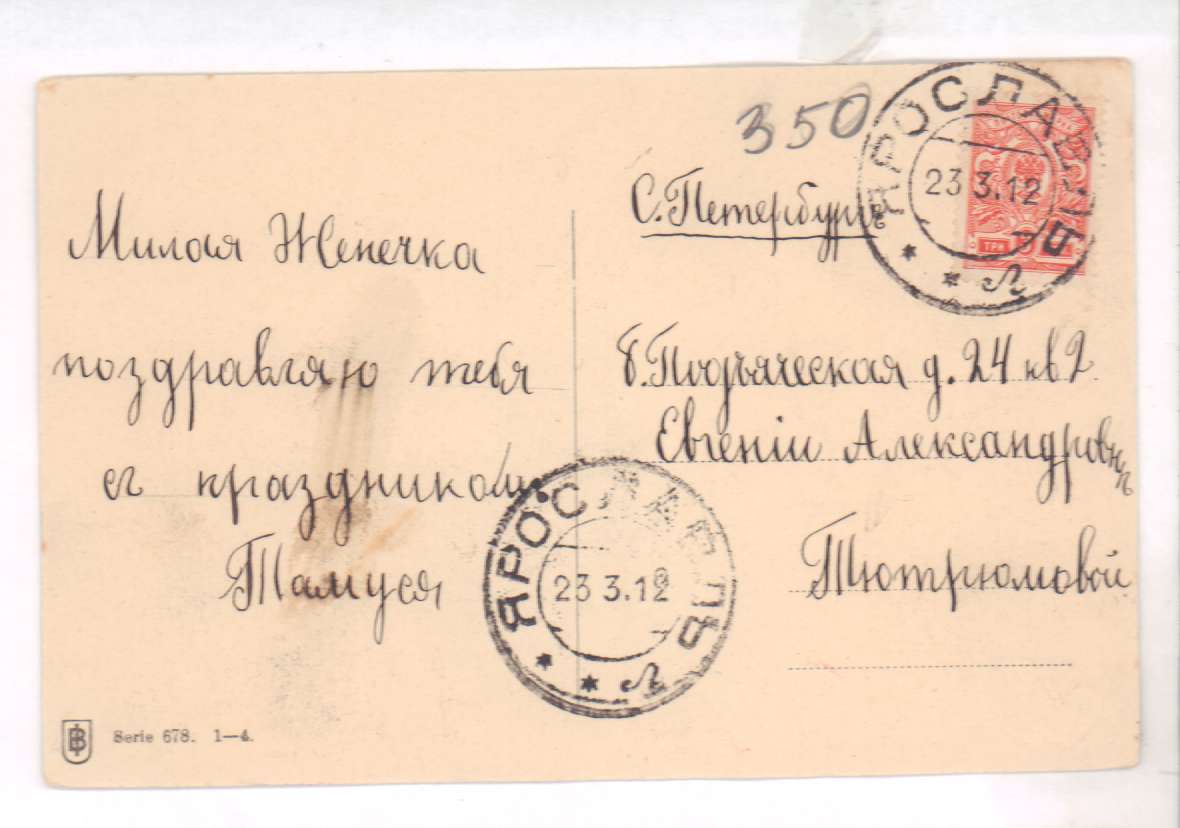 350
С. Петербургъ
Милая Женечка
поздравляю тебя
съ праздникомъ.
Тамуся
б. Подъяческая д. 24 кв 2
Евгеніи Александровнѣ
Тютрюмовой
ЯРОСЛАВЛЬ
23 3.12
Л
ТРИ
ЯРОСЛАВЛЬ
23 3.12
Л
Serie 678. 1—4.